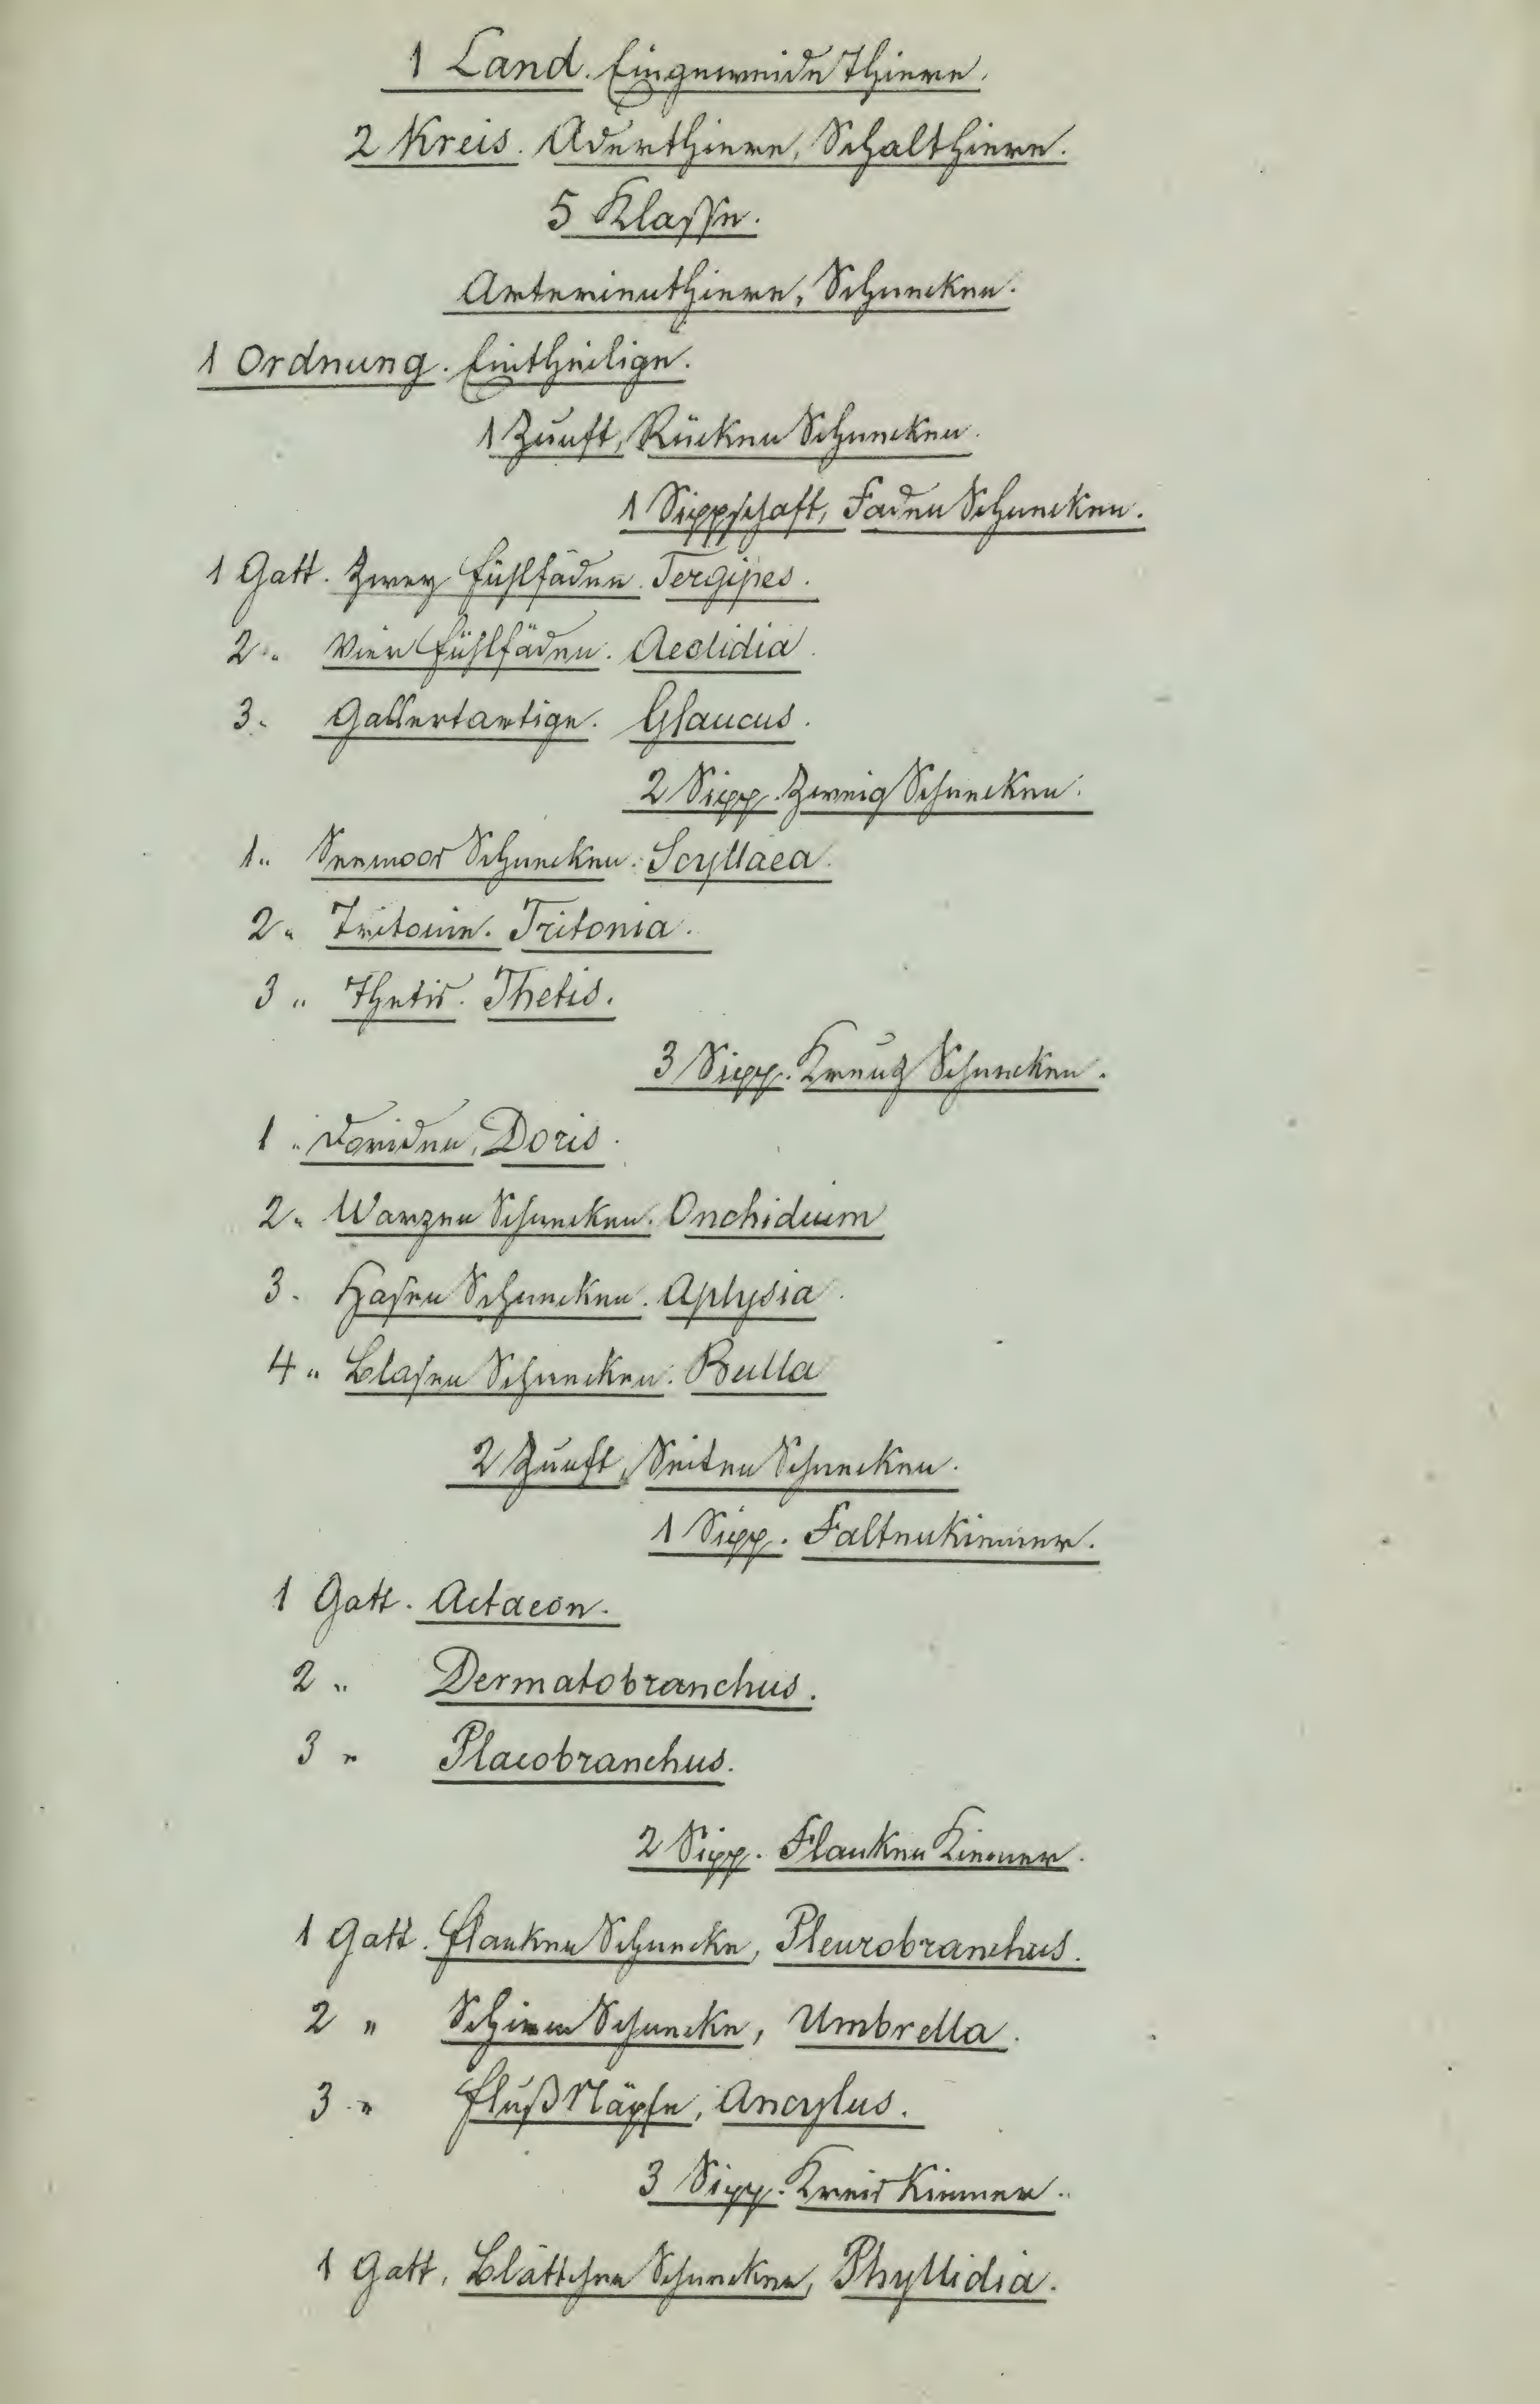 1 Land. Eingeweide Thiere.
2 Kreis. Aderthiere, Schalthiere.
5 Klasse.
Arterienthiere, Schnecken.
1 Ordnung. Eintheilige.
1 Zunft, Rücken Schnecken.
1 Sippschaft, Faden Schnecken.
1 Gatt. Zwey Fühlfäden. Tergipes.
2 " Vier Fühlfäden. Aeolidia.
3 " Gallertartige. Glaucus.
2 Sipp. Zweig Schnecken.
1 " Seemoos Schnecken. Scyllaea.
2 " Tritonie. Tritonia.
3 " Thetis. Thetis.
3 Sipp. Kreuz Schnecken.
1 " Doriden, Doris.
2 " Warzen Schnecken. Onchidium
3 " Hasen Schnecken. Aplysia.
4 " Blasen Schnecken. Bulla
2 Zunft, Seiten Schnecken.
1 Sipp. Faltenkiemer.
1 Gatt. Actaeon.
2 " Dermatobranchus.
3 " Placobranchus.
2 Sipp. Flanken Kiemer.
1 Gatt. Flanken Schnecke, Pleurobranchus.
2 " Schirm Schnecke, Umbrella.
3 " Fluß Näpfe, Ancylus.
3 Sipp. Kreis Kiemer.
1 Gatt, Blättchen Schnecken, Phyllidia.